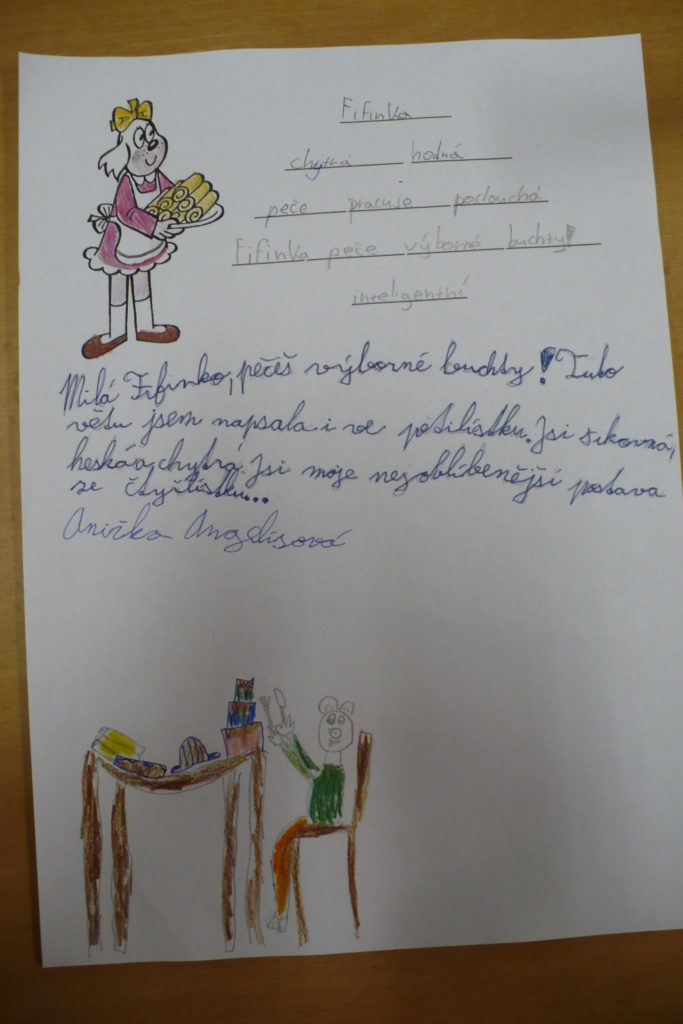 Fifinka
chytrá hodná
peče pracuje poclouchá
Fifinka peče výborné buchty!
inteligentní
Milá Fifinko, péčéš výborné buchty! Tuto
větu jsem napsala i ve pětilístku. Jsi šikovná,
heská a chytrá. Jsi moje nejoblíbenější postava
ze čtyřlístku...
Anička Angelisová